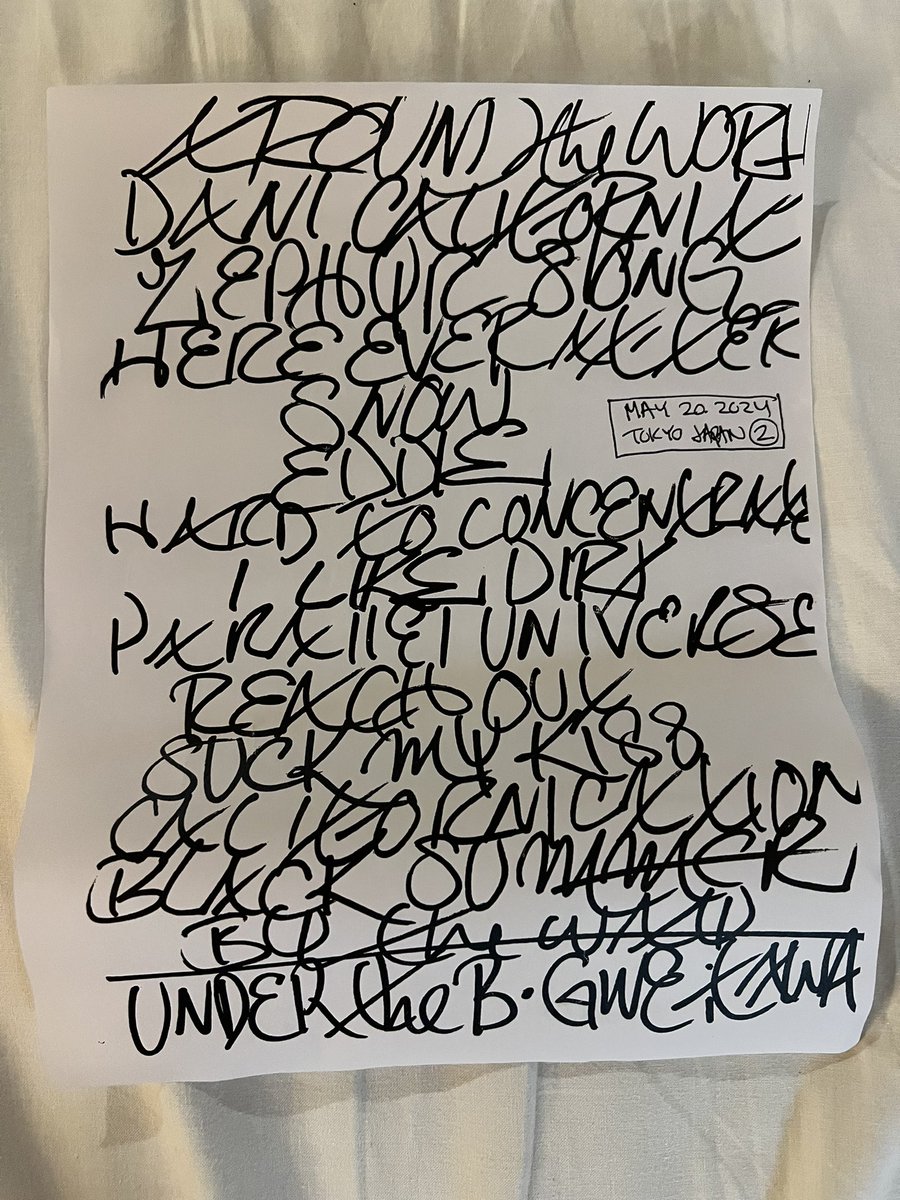 AROUND the WORLD
DANI CALIFORNIA
ZEPHYR SONG
HERE EVER AFTER
SNOW
MAY 20 2024
TOKYO JAPAN 2
EDDIE
HARD TO CONCENTRATE
I LIKE DIRT
PARALLEL UNIVERSE
REACH OUT
SUCK MY KISS
CALIFORNICATION
BLACK SUMMER
BY the WAY
UNDER the B. GWEiTAWA